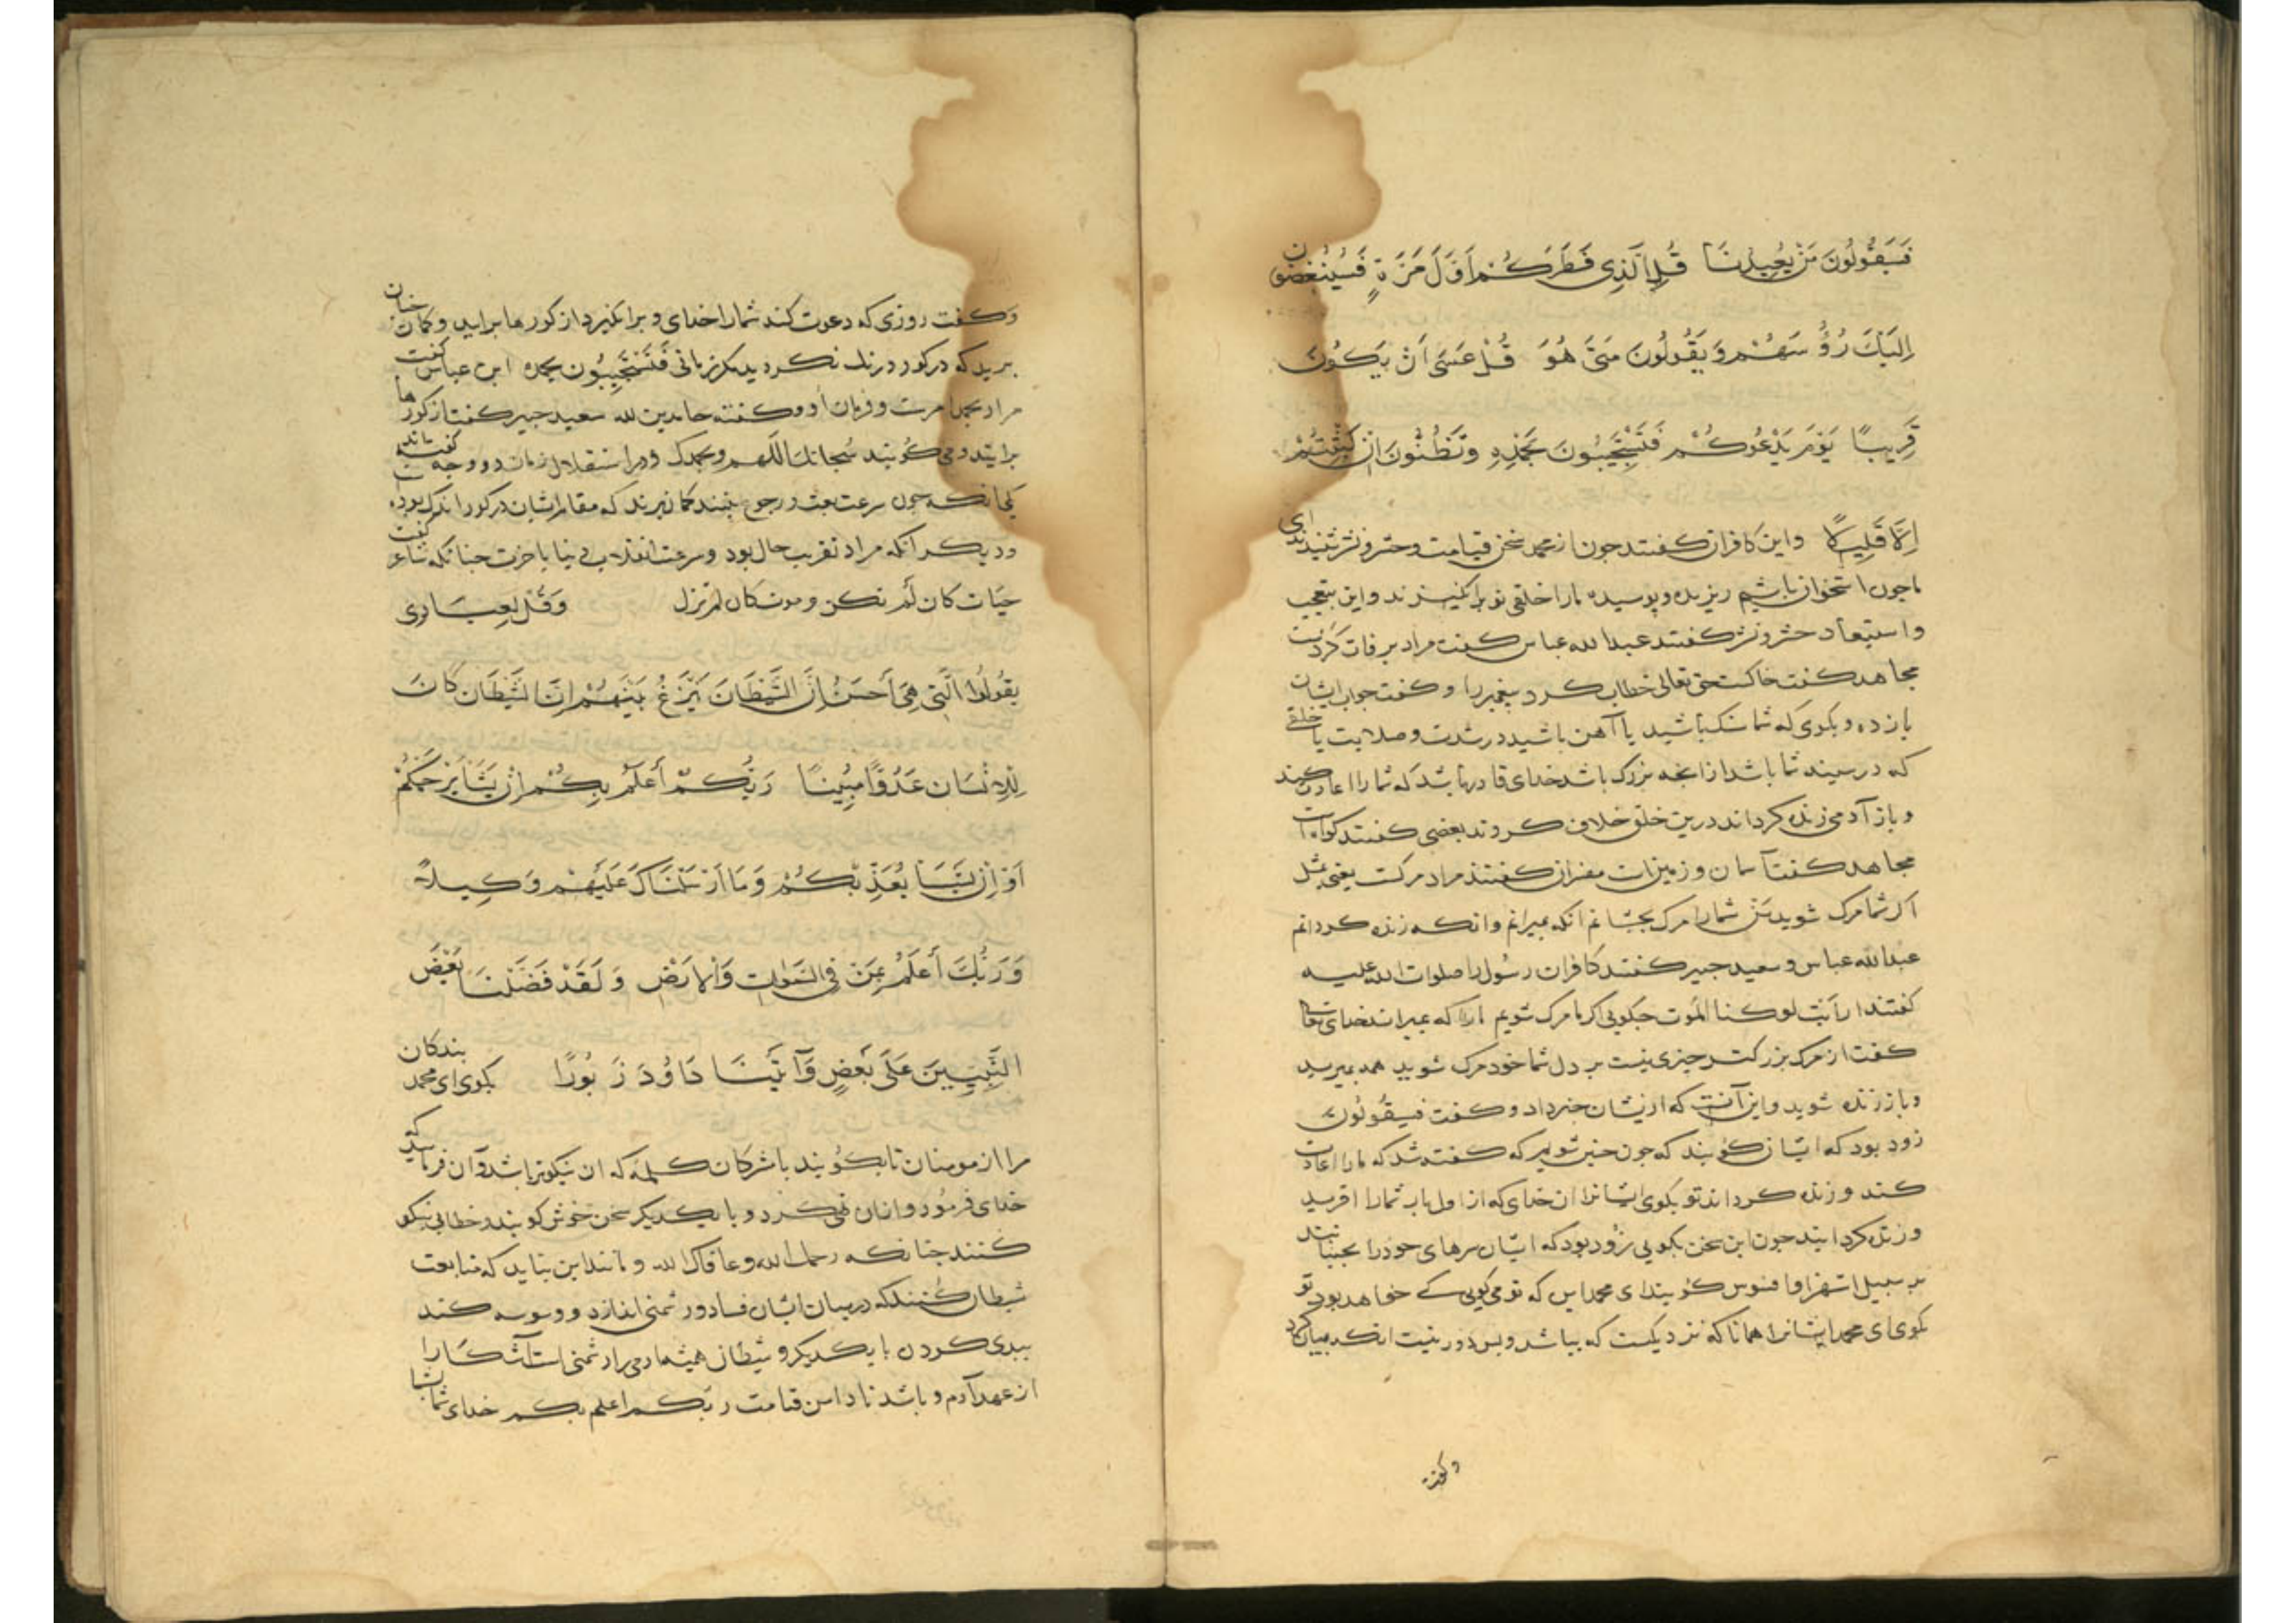 فَسَيَقُولُونَ مَنْ يُعِيدُنَا قُلِ الَّذِي فَطَرَكُمْ أَوَّلَ مَرَّةٍ فَسَيُنْغِضُونَ
اِلَيْكَ رُؤُسَهُمْ وَيَقُولُونَ مَتَى هُوَ قُلْ عَسَى اَنْ يَكُونَ
قَرِيبًا يَوْمَ يَدْعُوكُمْ فَتَسْتَجِيبُونَ بِحَمْدِهِ وَتَظُنُّونَ اِنْ لَبِثْتُمْ
اِلَّا قَلِيلًا واین کافران کفتند جون از محمد سخن قیامت وحشر ونشر شنیدند ای
ماجون استخوان باشیم ریزیده وپوسیده مارا خلقی نو برانکیزند واین بتعجب
واستبعاد حشر ونشر کفتند عبدالله عباس کفت مراد برفات کردست
مجاهد کفت خاکست حق تعالی خطاب کرد پیغمبررا وکفت جواب ایشان
بازده وبکوی که شما سنک باشید یا آهن باشید در شدت وصلابت یا خلقی
که در سینه شما باشد ازانجه بزرک باشد خدای قادر باشد که شمارا اعادت کند
وباز آدمی زنده کرداند درین خلق خلاف کردند بعضی کفتند کوهست
مجاهد کفت آسمان وزمینست مفسران کفتند مراد مرکست یعنی بمثل
اکر شما مرک شوید من شمارا مرک بجشانم انکه بمیرانم وانکه زنده کردانم
عبدالله عباس وسعید جبیر کفتند کافران رسول را صلوات الله علیه
کفتند ارایت لو کنا الموت جکویی اکر ما مرک شویم مارا که میراند خدای تعالی
کفت از مرک بزرکتر جیزی نیست بر دل شما خود مرک شوید همه بمیرید
وباز زنده شوید واین آنست که ازیشان خبر داد وکفت فسیقولون
زود بود که ایشان کویند که جون جنین شویم که کفته شد که مارا اعادت
کند وزنده کرداند تو بکوی ایشانرا ان خدای که از اول باب شمارا افرید
وزنده کردانید جون این سخن بکویی زود بود که ایشان سرهای خودرا بجنبانند
بر سبیل استهزا وافسوس کویند ای محمد این که تو می کویی کی خواهد بود تو
بکوی ای محمد ایشانرا همانا که نزدیکست که بباشد وبس دور نیست انکه بیان کرد
وکفت
وکفت روزی که دعوت کند شمارا خدای وبرانکیزد از کورها برایید وکمان جنان
برید که در کور درنک نکردید مکر زمانی فَتَسْتَجِيبُونَ بحمده ابن عباس کفت
مراد بحمد امرست وفرمان او وکفته حامدین لله سعید جبیر کفت از کورها
برایند ومی کویند سُبحانك اللّهم وبحمدک ودر استقلال زمان دو وجه کفته اند
یکی انکه جون سرعت بعث ورجوع بینند کمان برند که مقام ایشان در کور اندک بوده
ودیکر انکه مراد تقریب حال بود وسرعت انقلاب دنیا باخرت جنانکه شاعر کفت
حیات کان لم تکن وموت کان لم یزل وَقُلْ لِعِبَادِي
يَقُولُوا الَّتِي هِيَ أَحْسَنُ إِنَّ الشَّيْطَانَ يَنْزَغُ بَيْنَهُمْ إِنَّ الشَّيْطَانَ كَانَ
لِلْإِنْسَانِ عَدُوًّا مُبِينًا رَبُّكُمْ أَعْلَمُ بِكُمْ إِنْ يَشَأْ يَرْحَمْكُمْ
اَوْ اِنْ يَشَأْ يُعَذِّبْكُمْ وَمَا اَرْسَلْنَاكَ عَلَيْهِمْ وَكِيلًا
وَرَبُّكَ أَعْلَمُ بِمَنْ فِي السَّمٰوَاتِ وَالْاَرْضِ وَلَقَدْ فَضَّلْنَا بَعْضَ
النَّبِيِّينَ عَلَى بَعْضٍ وَآتَيْنَا دَاوُدَ زَبُورًا بکوی ای محمد بندکان
مرا از مومنان تا بکویند با مشرکان کلمه که ان نیکوتر باشد وآن فرمایند که
خدای فرمود وازان نهی کرد وبا یکدیکر سخن خوش کویند وخطابی نیکو
کنند جنانکه رحمك الله وعافاک الله ومانند این نباید که متابعت
شیطان کنند که در میان ایشان فساد ودشمنی اندازد ووسوسه کند
ببدی کردن با یکدیکر وشیطان همیشه ادمی را دشمنی است آشکارا
از عهد آدم وباشد تا دامن قیامت ربکم اعلم بکم خدای شما بشما